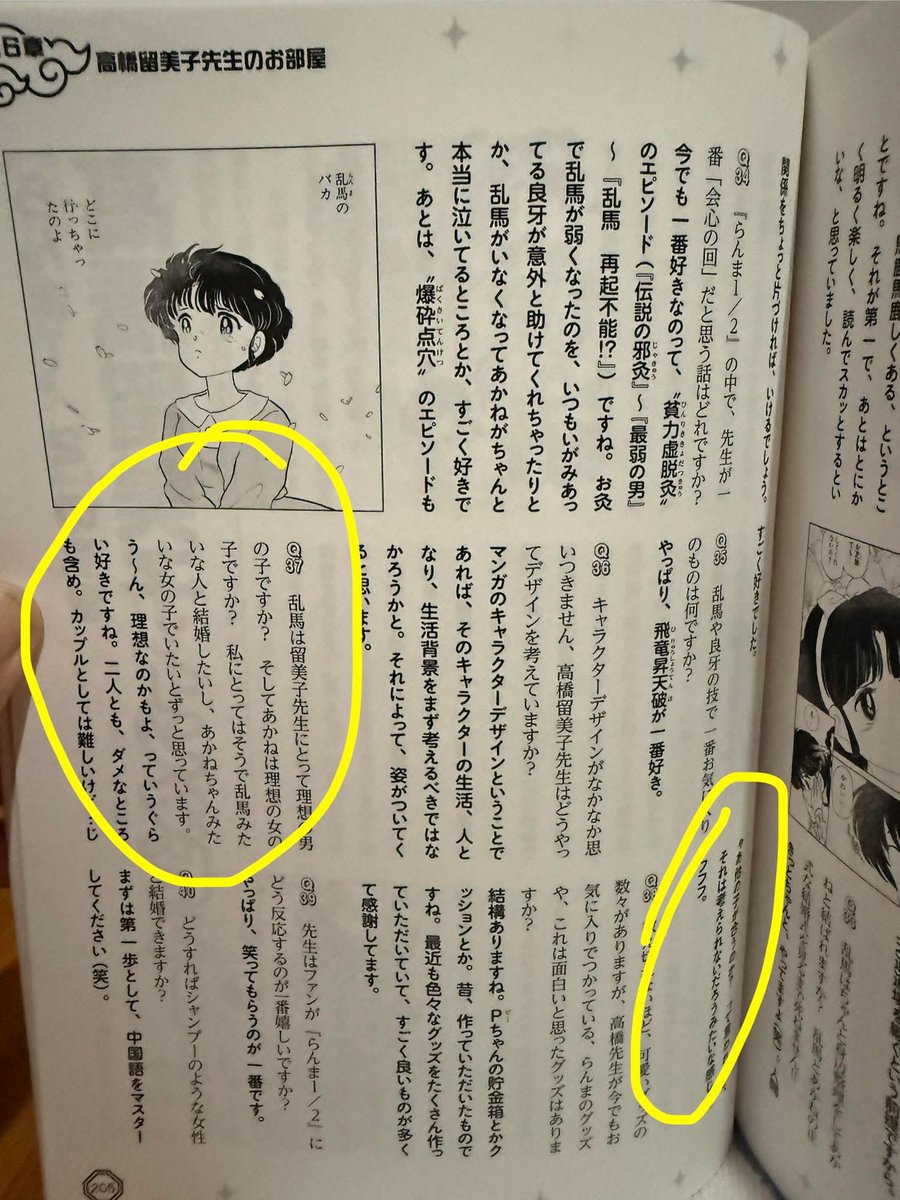 6章
高橋留美子先生のお部屋
とですね。それが第一で、あとはとにか
く明るく楽しく、読んでスカッとするとい
いな、と思っていました。
関係をちょっと片づければ、いけるでしょう。
Q34 『らんま1/2』の中で、先生が一
番「会心の回」だと思う話はどれですか?
今でも一番好きなのって、〝貧力虚脱灸〟
のエピソード(『伝説の邪灸』~『最弱の男』
~『乱馬 再起不能!?』)ですね。お灸
で乱馬が弱くなったのを、いつもいがみあっ
てる良牙が意外と助けてくれちゃったりと
か、乱馬がいなくなってあかねがちゃんと
本当に泣いてるところとか、すごく好きで
す。あとは、〝爆砕点穴〟のエピソードも
乱馬の
バカ
どこに
行っちゃっ
たのよ
すごく好きでした。
Q35 乱馬や良牙の技で一番お気に入り
のものは何ですか?
やっぱり、飛竜昇天破が一番好き。
Q36 キャラクターデザインがなかなか思
いつきません、高橋留美子先生はどうやっ
てデザインを考えていますか?
マンガのキャラクターデザインということで
あれば、そのキャラクターの生活、人と
なり、生活背景をまず考えるべきではな
かろうかと。それによって、姿がついてく
ると思います。
Q37 乱馬は留美子先生にとって理想の男
の子ですか? そしてあかねは理想の女の
子ですか? 私にとってはそうで乱馬みた
いな人と結婚したいし、あかねちゃんみた
いな女の子でいたいとずっと思っています。
う~ん、理想なのかもよ、っていうぐら
い好きですね。二人とも、ダメなところ
も含め。カップルとしては難しいけど
それは考えられないだろうみたいな
フフフ。
数々がありますが、高橋先生が今でもお
気に入りでつかっている、らんまのグッズ
や、これは面白いと思ったグッズはありま
すか?
結構ありますね。Pちゃんの貯金箱とかク
ッションとか。昔、作っていただいたもので
すね。最近も色々なグッズをたくさん作っ
ていただいていて、すごく良いものが多く
て感謝してます。
Q39 先生はファンが『らんま1/2』に
どう反応するのが一番嬉しいですか?
やっぱり、笑ってもらうのが一番です。
どうすればシャンプーのような女性
と結婚できますか?
まずは第一歩として、中国語をマスター
してください(笑)。
205